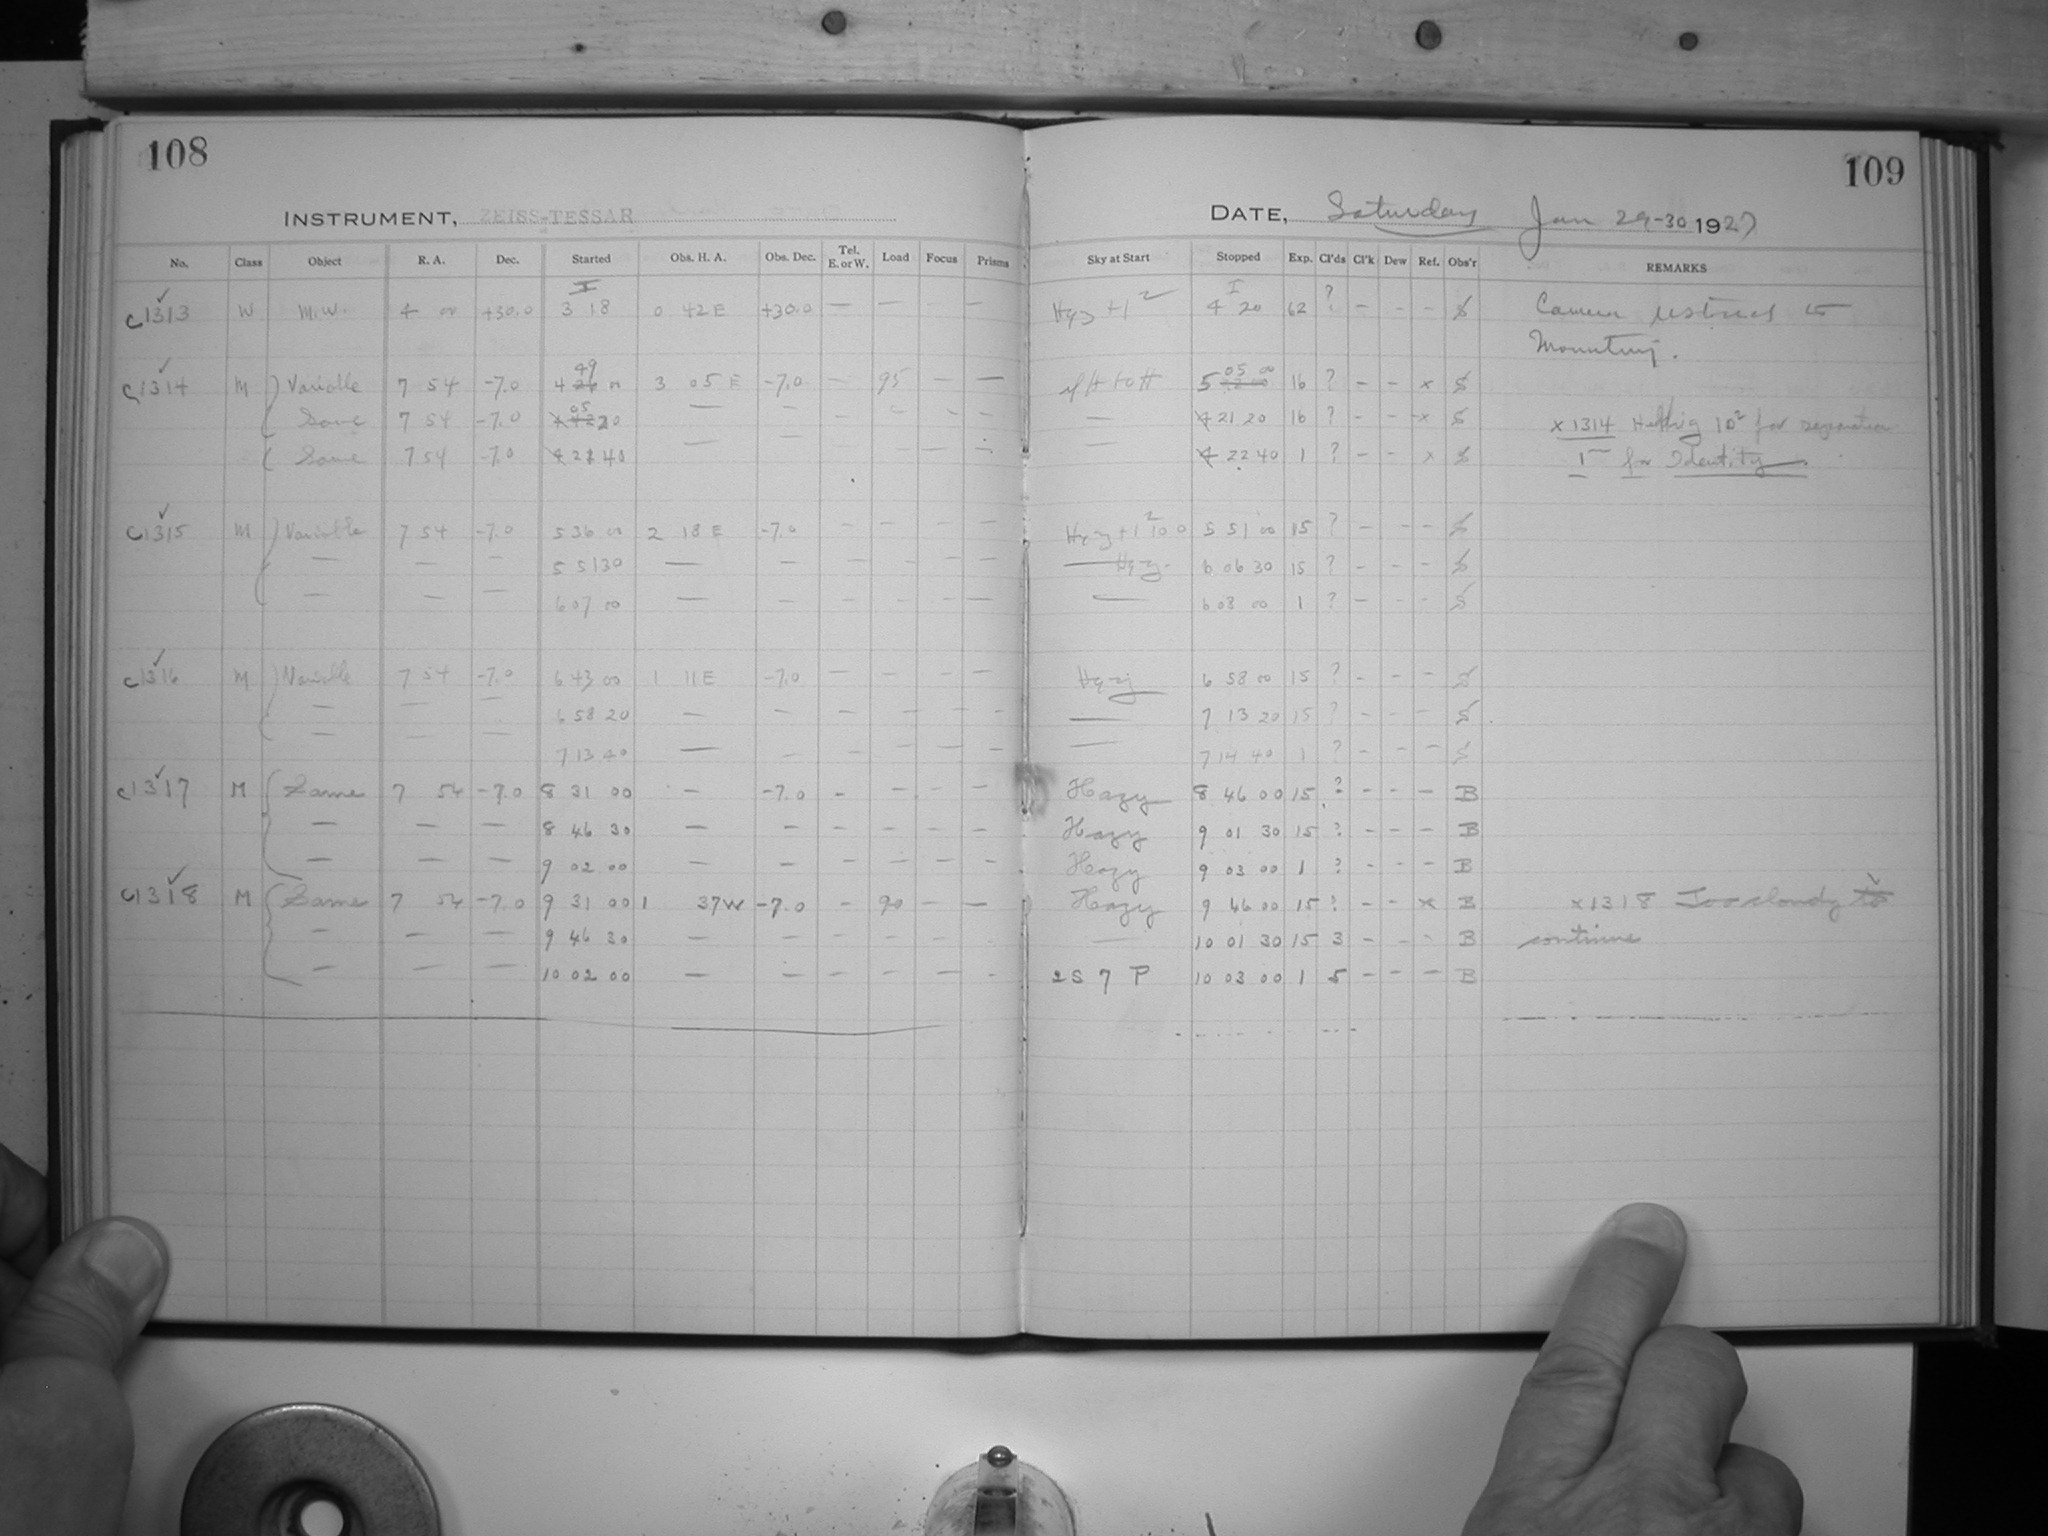 108
109
INSTRUMENT, ZEISS-TESSAR
DATE, Saturday Jan 29-30 1927
No. Class Object R. A. Dec. Started Obs. H. A. Obs. Dec. Tel. E. or W. Load Focus Prisms Sky at Start Stopped Exp. Cl'ds Cl'k Dew Ref. Obs'r REMARKS
c1313 W M.W. 4 00 +30.0 3 18 0 42 E +30.0 — — — — Hazy +1² 4 20 62 ? — - - S Camera restored to
Mounting.
c1314 M Variable 7 54 -7.0 4 49 3 05 E -7.0 — 95 — — 5 05 00 16 ? - - x S
Same 7 54 -7.0 — — — 21 20 16 ? - - x S x 1314 10² for separation
Same 7 54 -7.0 21 40 — — 22 40 1 ? - - x S for Identity
c1315 M Variable 7 54 -7.0 5 36 00 2 18 E -7.0 — — — — Hazy 5 51 00 15 ? - - - S
— — — 5 51 30 — — — — — — Hazy 6 06 30 15 ? - - - S
— — — 6 07 00 — — — — — — — 6 08 00 1 ? - - - S
c1316 M Variable 7 54 -7.0 6 43 00 1 11 E -7.0 — — — — Hazy 6 58 00 15 ? - - - S
— — — 6 58 20 — — — — — — — 7 13 20 15 ? - - - S
— — — 7 13 40 — — — — — — — 7 14 40 1 ? - - - S
c1317 M Same 7 54 -7.0 8 31 00 — -7.0 - - - — Hazy 8 46 00 15 ? - - - B
— — — 8 46 30 — — - - - - Hazy 9 01 30 15 ? - - - B
— — — 9 02 00 — — — — — — Hazy 9 03 00 1 ? - - - B
c1318 M Same 7 54 -7.0 9 31 00 1 37 W -7.0 - 90 - — Hazy 9 46 00 15 ? - - x B x 1318 Too cloudy to
— — — 9 46 30 — — - - - - — 10 01 30 15 3 - - - B continue
— — — 10 02 00 — — — — — - 2 S 7 P 10 03 00 1 5 - - - B